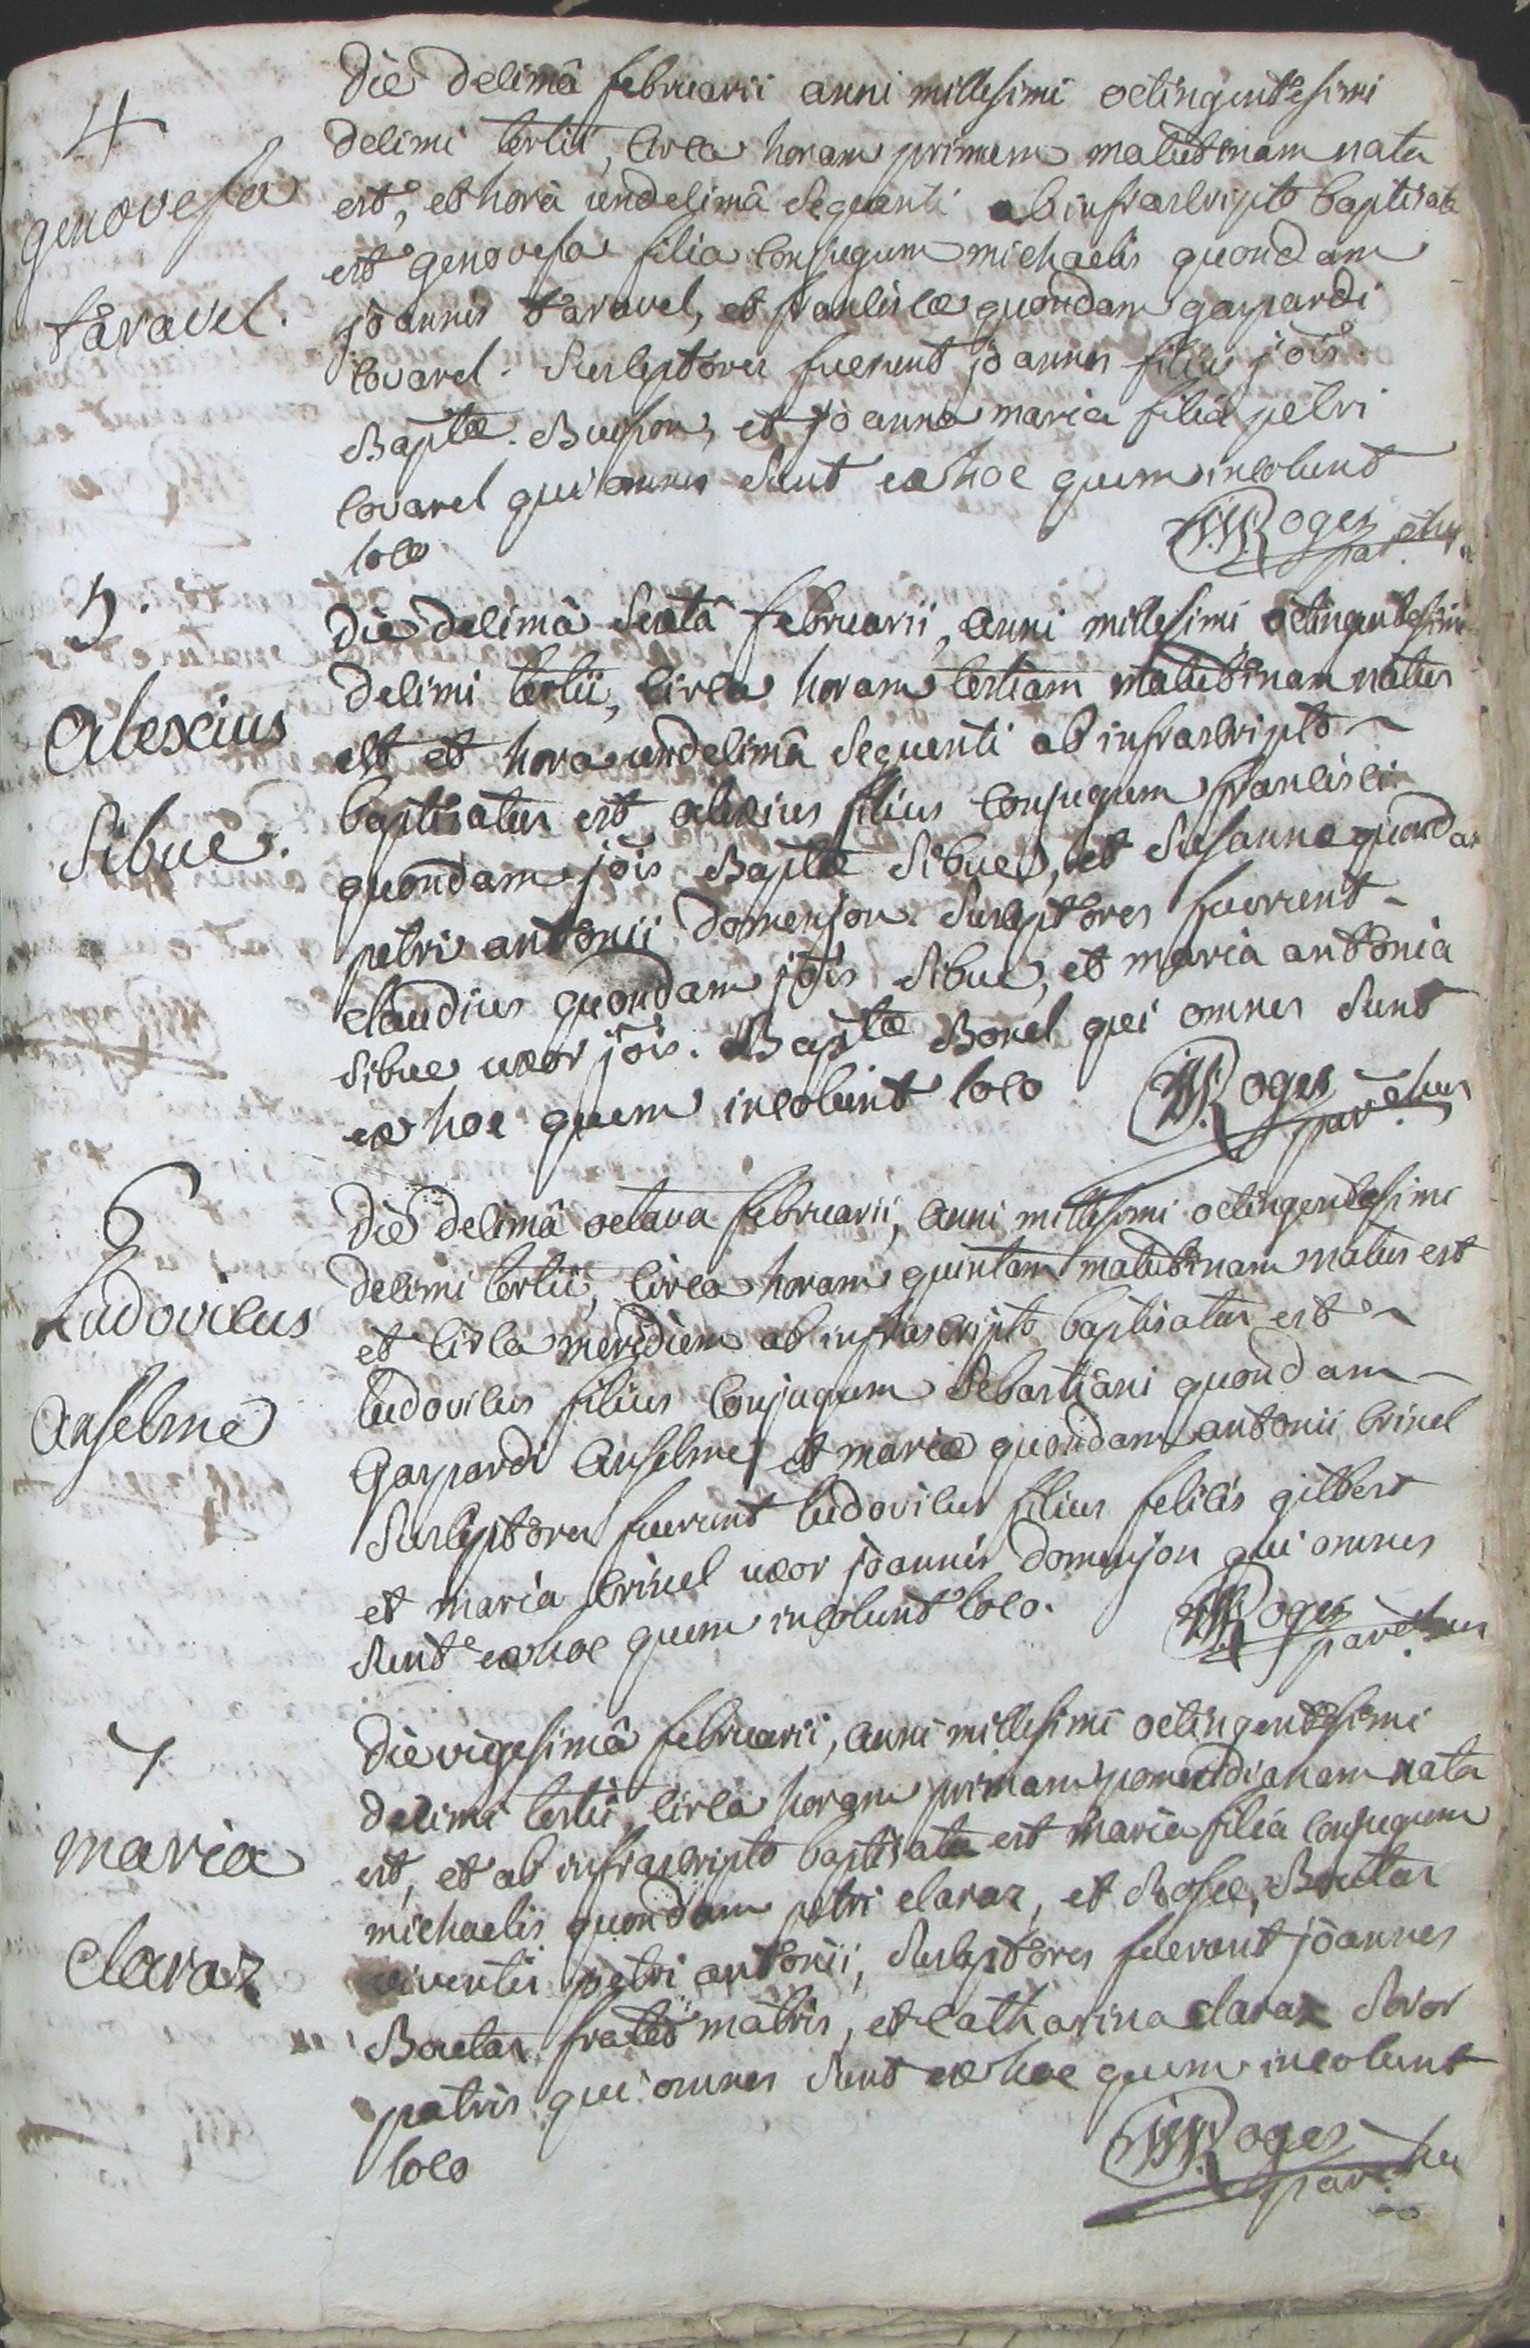 4
genovefa
taravel.
Die decimâ februarii anni millesimi octingentesimi
decimi tertii, circa horam primam matutinam nata
est, et horâ undecimâ sequenti ab infrascripto baptisata
est genovefa filia conjugum michaelis quondam
joannis taravel, et franciscæ quondam gaspardi
covarel. Susceptores fuerunt joannes filius jois.
Baptæ. Buisson, et joanna maria filia petri
covarel qui omnes sunt ex hoc quem incolunt
loco
Roges par.chus
5.
Alexius
Sibue.
Die decimâ Sextâ februarii, anni millesimi octingentesimi
decimi tertii, circa horam tertiam matutinam natus
est et hora undecimâ sequenti ab infrascripto
baptisatus est alexius filius conjugum francisci
quondam jois Baptæ Sibue, et Susannæ quondam
petri antonii domenjon. Susceptores fuerunt
claudius quondam jois Sibue, et maria antonia
Sibue uxor jois. Baptæ Borel qui omnes sunt
ex hoc quem incolunt loco
Roges par.chus
6
Ludovicus
Anselme
Die decimâ octava februarii, anni millesimi octingentesimi
decimi tertii, circa horam quintam matutinam natus est
et circa meridiem ab infrascripto baptisatus est
ludovicus filius conjugum Sebastiani quondam
Gaspardi Anselme et mariæ quondam antonii Crinel
Susceptores fuerunt ludovicus filius felicis gilbert
et maria Crinel uxor joannis domenjon qui omnes
sunt ex hoc quem incolunt loco.
Roges par.chus
7
maria
claraz
Die vigesimâ februarii, anni millesimi octingentesimi
decimi tertii, circa horam primam pomeridianam nata
est, et ab infrascripto baptisata est maria filia conjugum
michaelis quondam petri claraz, et Rosæ, Boutaz
viventis petri antonii, Susceptores fuerunt joannes
Boutaz frater matris, et catharina claraz Soror
patris qui omnes sunt ex hoc quem incolunt
loco
Roges par.chus